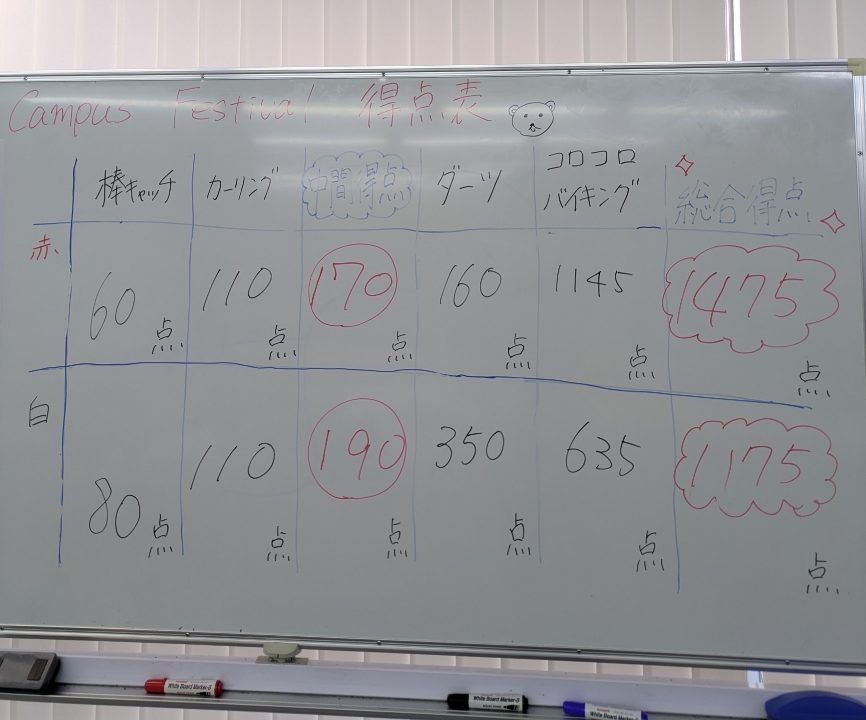 Campus Festival 得点表
棒キャッチ カーリング 中間得点 ダーツ コロコロバイキング 総合得点
赤 60点 110点 170点 160点 1145点 1475点
白 80点 110点 190点 350点 635点 1175点
White Board Marker
White Board Marker
White Board Marker